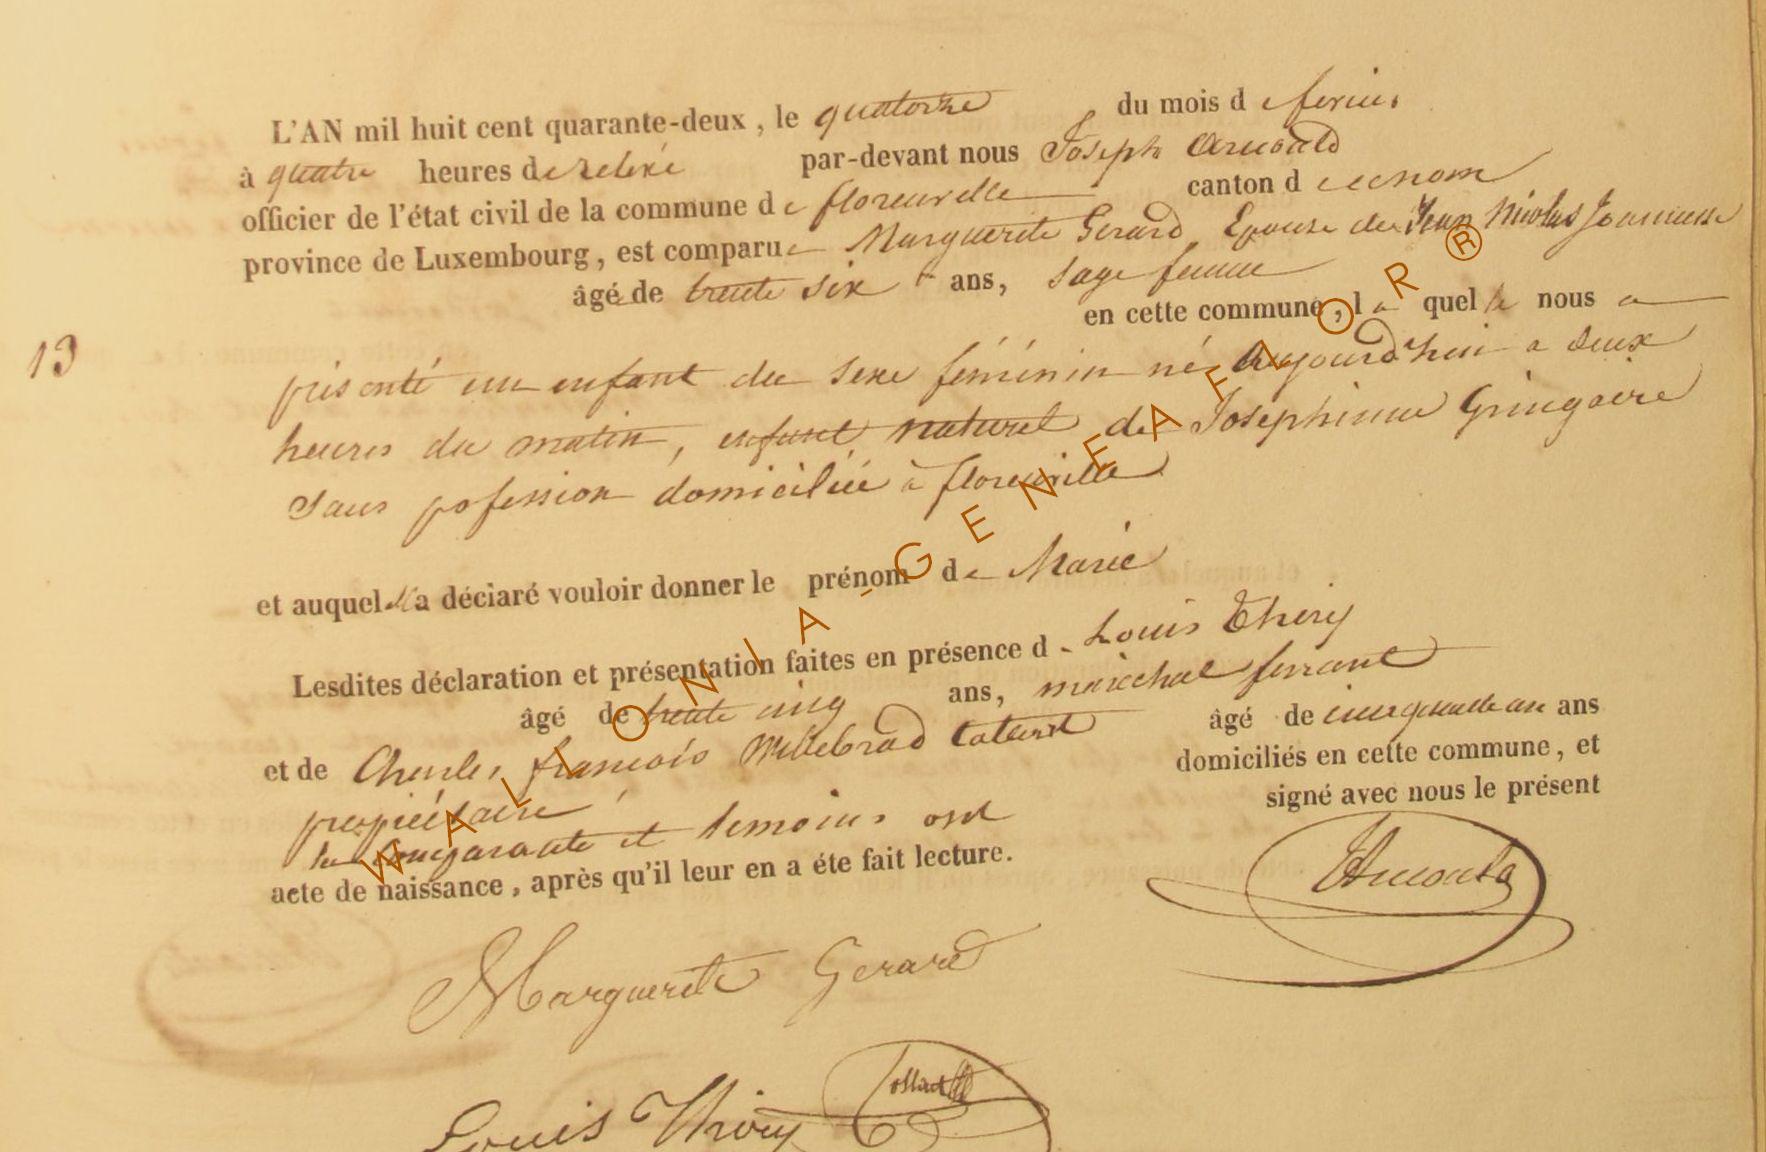 L'AN mil huit cent quarante-deux, le quatorze du mois de fevrier
à quatre heures de relevé par-devant nous Joseph Arnould
officier de l'état civil de la commune de florenville canton de ce nom
province de Luxembourg, est comparue Marguerite Gerard Epouse de Jean Nicolas
âgé de trente six ans, sage femme
en cette commune, la quelle nous a
13
présenté un enfant du sexe féminin né Aujourd'hui a deux
heures du matin, enfant naturel de Josephinne Gringoire
Sans pofession domiciliée à florenville
et auquel a déclaré vouloir donner le prénom de Marie
Lesdites déclaration et présentation faites en présence d Louis Thiry
âgé de trente cinq ans, maréchal ferrant
et de Charles francois Willebrad âgé de cinquante un ans
propriétaire domiciliés en cette commune, et
la comparante et temoins ont signé avec nous le présent
acte de naissance, après qu'il leur en a éte fait lecture.
JArnould
Marguerite Gerard
Louis Thiry
WALLONIA-GENEAFLOR®